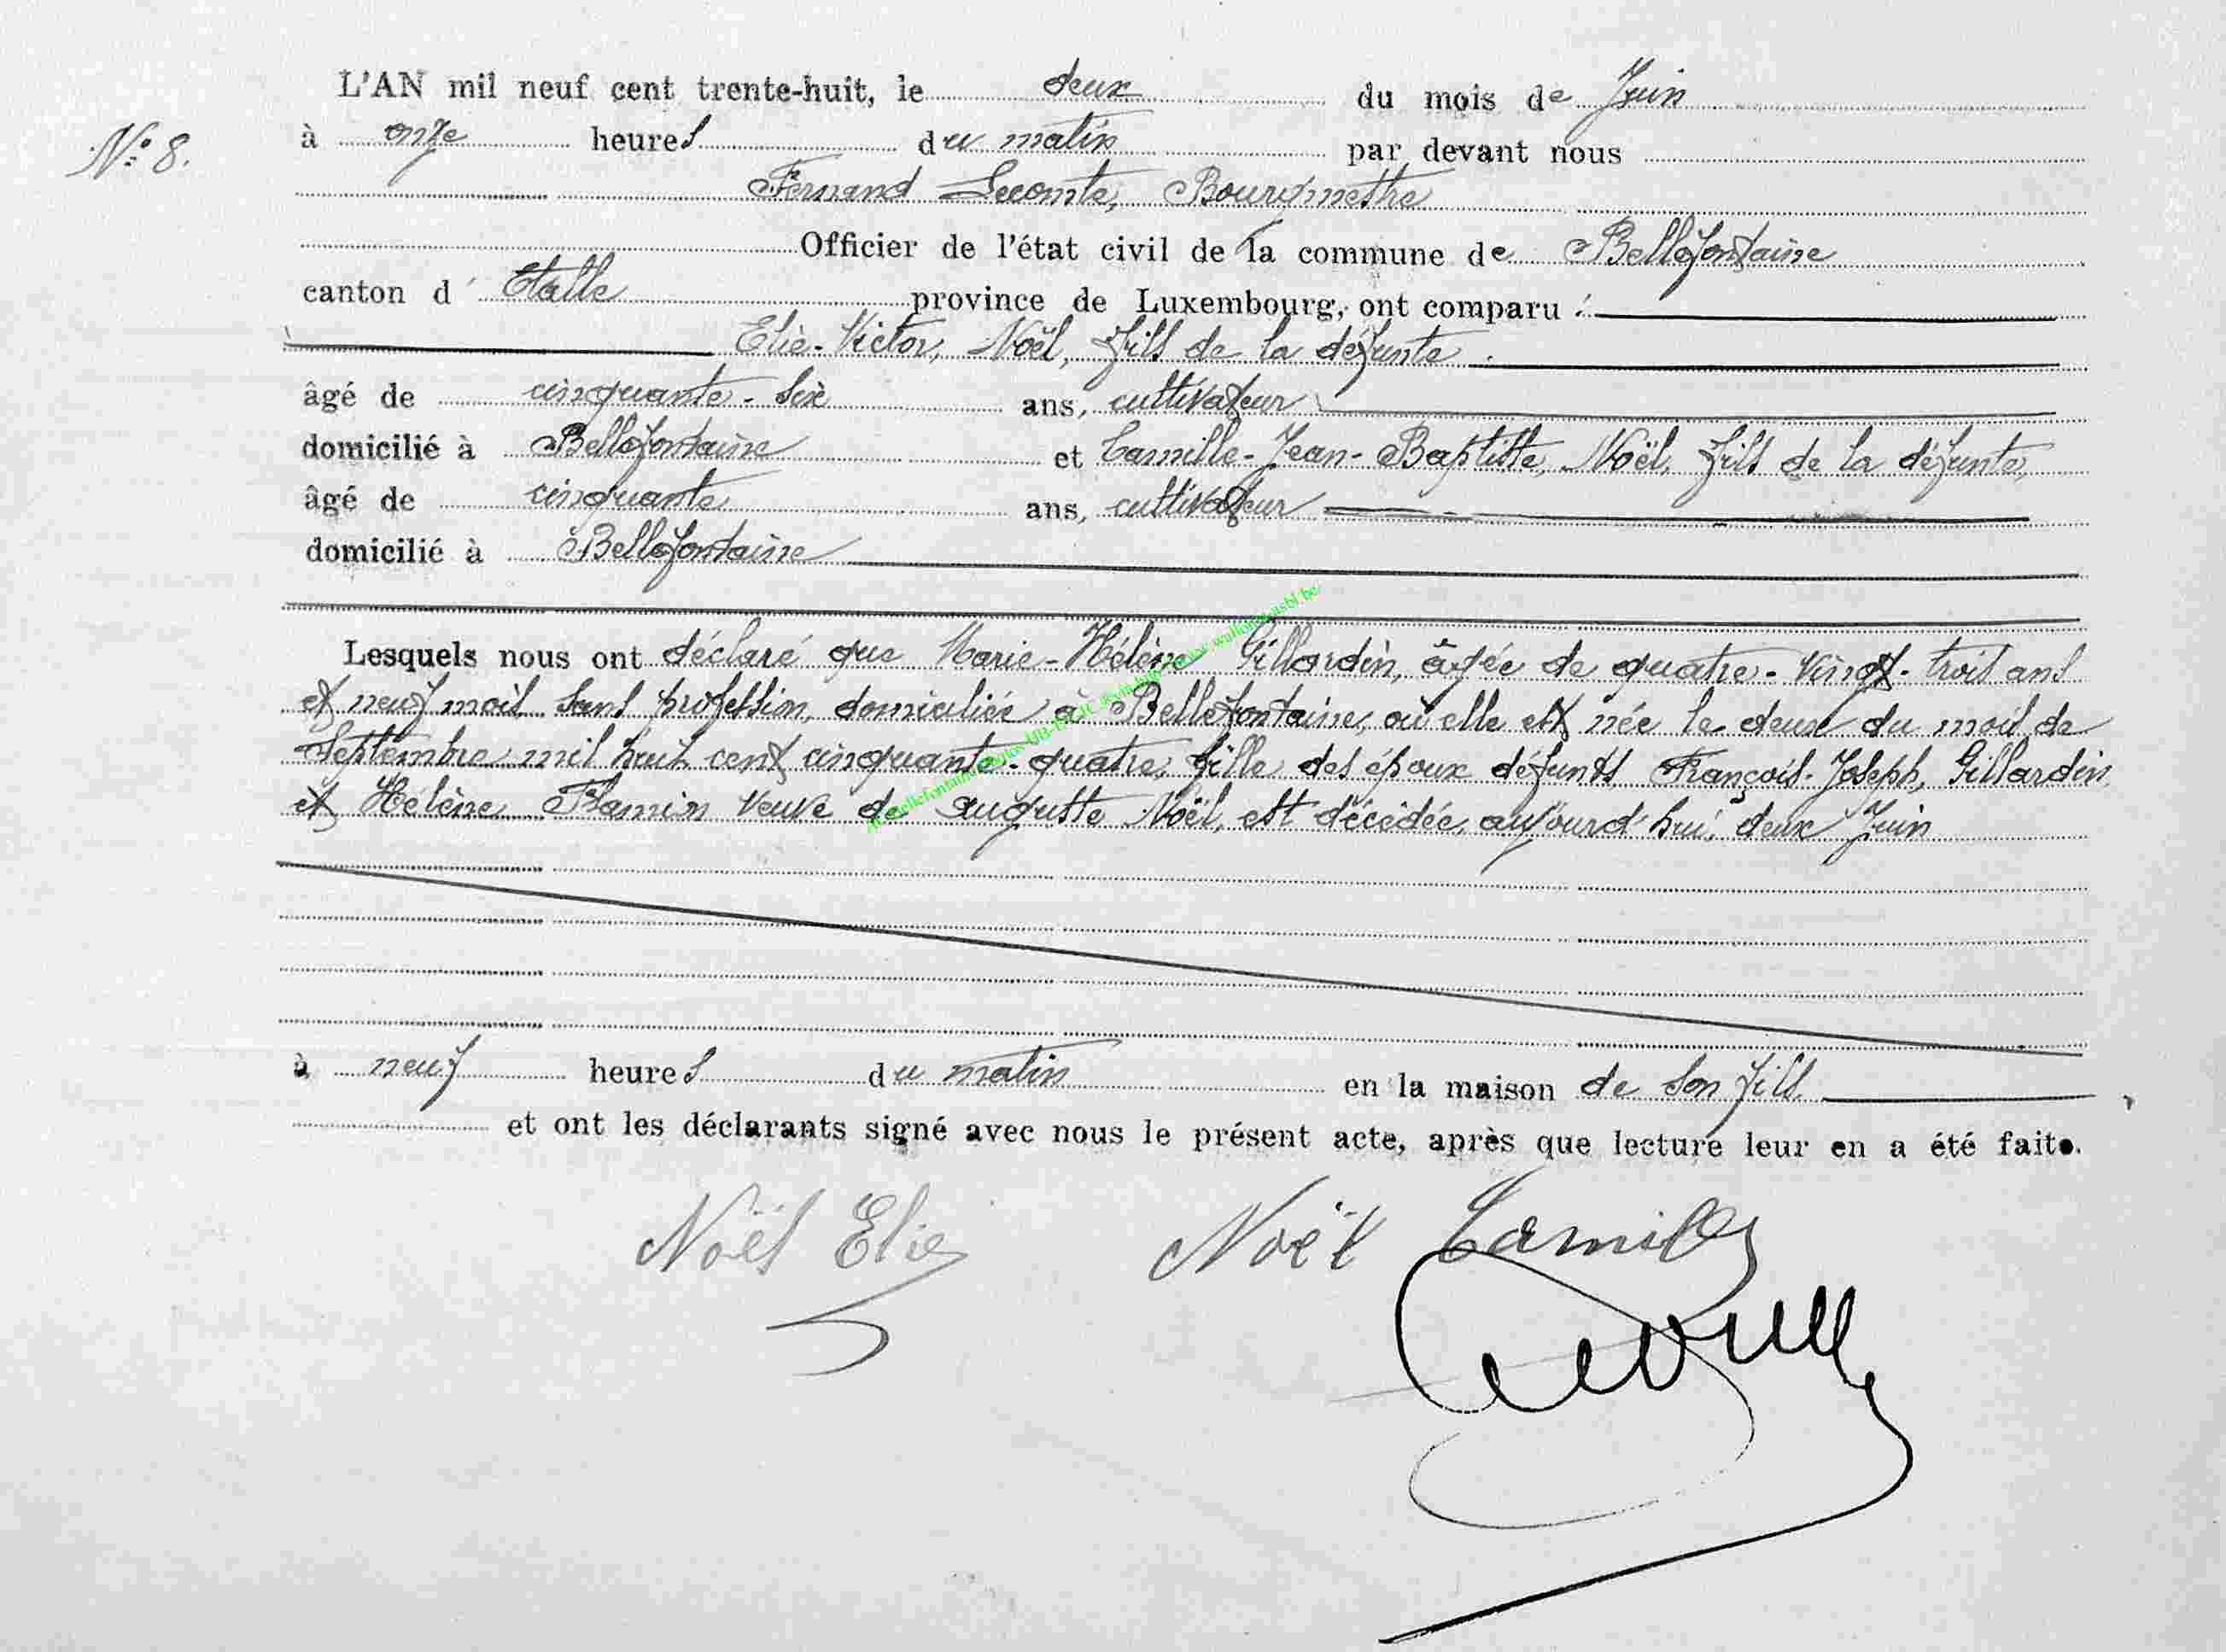 L'AN mil neuf cent trente-huit, le deux du mois de Juin
N° 8.
à onze heures du matin par devant nous
Fernand Lecomte, Bourgmestre
Officier de l'état civil de la commune de Bellefontaine
canton d' Etalle province de Luxembourg, ont comparu :
Elie-Victor, Noël, fils de la défunte
âgé de cinquante-six ans, cultivateur
domicilié à Bellefontaine et Camille-Jean-Baptiste, Noël, fils de la défunte,
âgé de cinquante ans, cultivateur
domicilié à Bellefontaine
Lesquels nous ont déclaré que Marie-Hélène Gillardin, âgée de quatre-vingt-trois ans
et neuf mois sans profession, domiciliée à Bellefontaine, où elle est née le deux du mois de
Septembre mil huit cent cinquante-quatre, fille des époux défunts François-Joseph, Gillardin,
et Hélène Flamin veuve de Auguste Noël, est décédée, aujourd'hui, deux Juin
à neuf heures du matin en la maison de son fils
et ont les déclarants signé avec nous le présent acte, après que lecture leur en a été faite.
Noël Elie Noël Camille